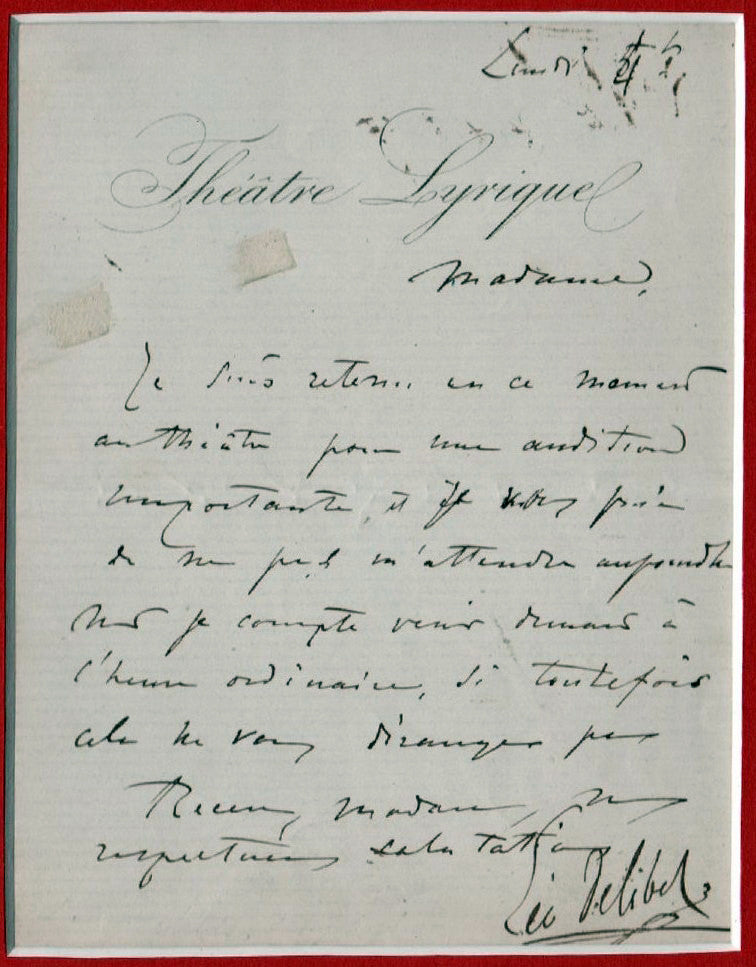 Lundi
Théâtre Lyrique
Madame,
Je suis retenu en ce moment
au théâtre pour une audition
importante, et je vous prie
de ne pas m'attendre aujourd'hui
mais je compte venir demain à
l'heure ordinaire, si toutefois
cela ne vous dérange pas
Recevez, madame, mes
respectueuses salutations
Léo Delibes